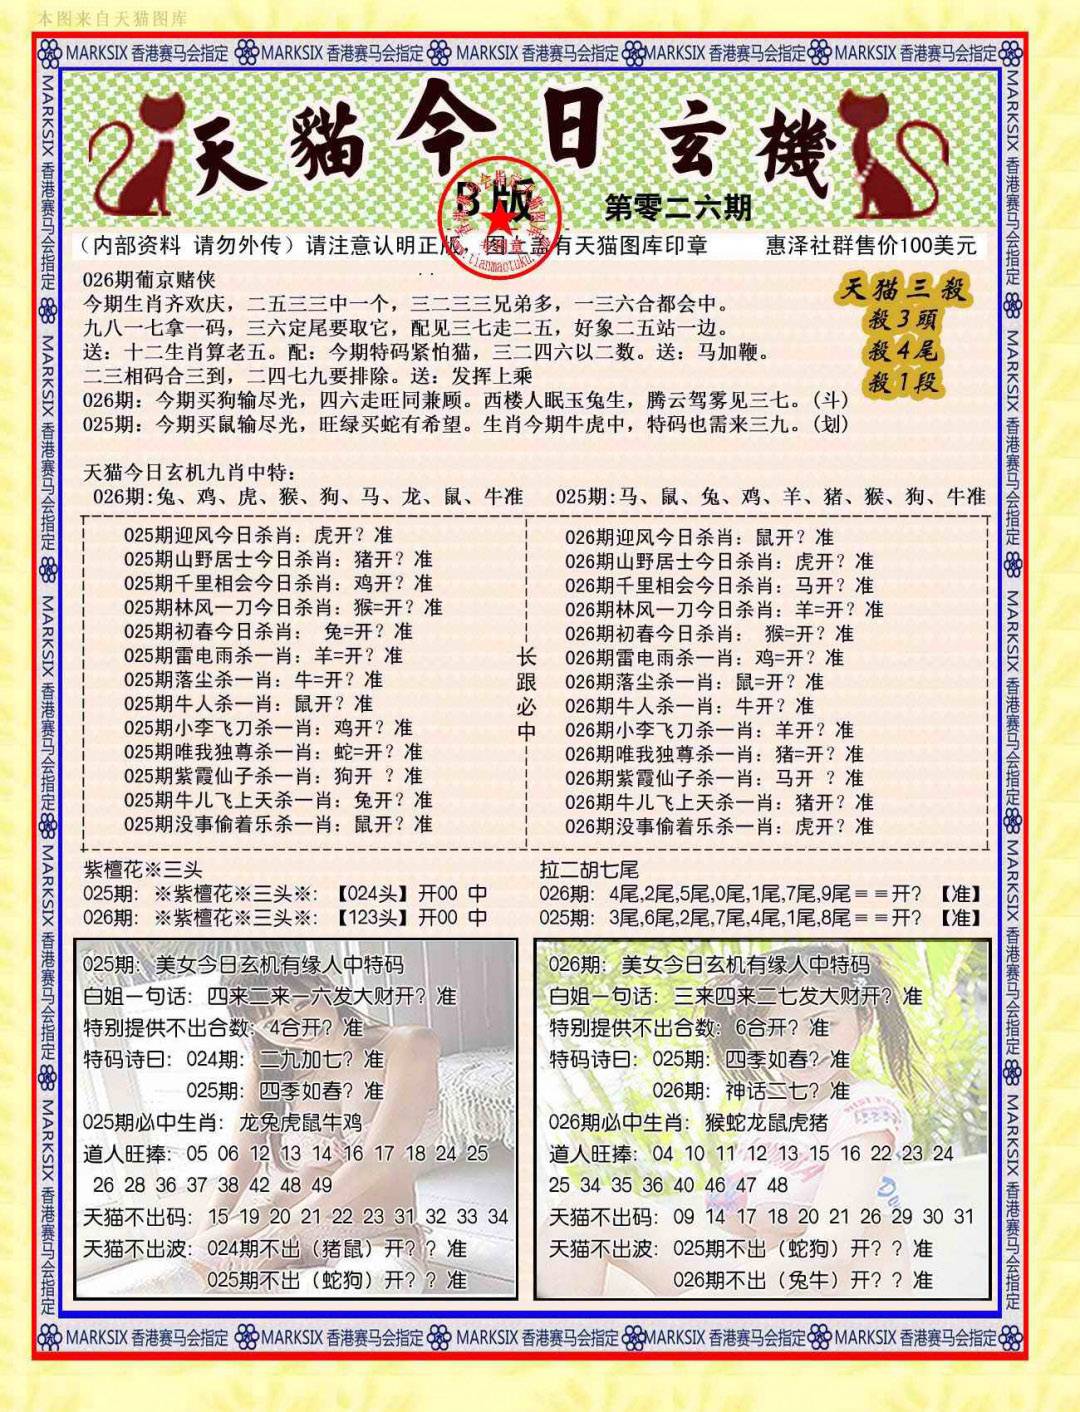 本图来自天猫图库
MARKSIX 香港赛马会指定 MARKSIX 香港赛马会指定 MARKSIX 香港赛马会指定 MARKSIX 香港赛马会指定 MARKSIX 香港赛马会指定
MARKSIX 香港赛马会指定 MARKSIX 香港赛马会指定 MARKSIX 香港赛马会指定 MARKSIX 香港赛马会指定 MARKSIX 香港赛马会指定
天貓今日玄機
B版
第零二六期
(内部资料 请勿外传)请注意认明正版, 图上盖有天猫图库印章 惠泽社群售价100美元
www.tianmaotuku.com
026期葡京赌侠
今期生肖齐欢庆, 二五三三中一个, 三二三三兄弟多, 一三六合都会中。
九八一七拿一码, 三六定尾要取它, 配见三七走二五, 好象二五站一边。
送: 十二生肖算老五。配: 今期特码紧怕猫, 三二四六以二数。送: 马加鞭。
二三相码合三到, 二四七九要排除。送: 发挥上乘
026期: 今期买狗输尽光, 四六走旺同兼顾。西楼人眠玉兔生, 腾云驾雾见三七。(斗)
025期: 今期买鼠输尽光, 旺绿买蛇有希望。生肖今期牛虎中, 特码也需来三九。(划)
天猫三殺
殺3頭
殺4尾
殺1段
天猫今日玄机九肖中特:
026期:兔、鸡、虎、猴、狗、马、龙、鼠、牛准 025期:马、鼠、兔、鸡、羊、猪、猴、狗、牛准
025期迎风今日杀肖: 虎开? 准
025期山野居士今日杀肖: 猪开? 准
025期千里相会今日杀肖: 鸡开? 准
025期林风一刀今日杀肖: 猴=开? 准
025期初春今日杀肖: 兔=开? 准
025期雷电雨杀一肖: 羊=开? 准
025期落尘杀一肖: 牛=开? 准
025期牛人杀一肖: 鼠开? 准
025期小李飞刀杀一肖: 鸡开? 准
025期唯我独尊杀一肖: 蛇=开? 准
025期紫霞仙子杀一肖: 狗开 ? 准
025期牛儿飞上天杀一肖: 兔开? 准
025期没事偷着乐杀一肖: 鼠开? 准
长
跟
必
中
026期迎风今日杀肖: 鼠开? 准
026期山野居士今日杀肖: 虎开? 准
026期千里相会今日杀肖: 马开? 准
026期林风一刀今日杀肖: 羊=开? 准
026期初春今日杀肖: 猴=开? 准
026期雷电雨杀一肖: 鸡=开? 准
026期落尘杀一肖: 鼠=开? 准
026期牛人杀一肖: 牛开? 准
026期小李飞刀杀一肖: 羊开? 准
026期唯我独尊杀一肖: 猪=开? 准
026期紫霞仙子杀一肖: 马开 ? 准
026期牛儿飞上天杀一肖: 猪开? 准
026期没事偷着乐杀一肖: 虎开? 准
紫檀花※三头
025期: ※紫檀花※三头※: 【024头】开00 中
026期: ※紫檀花※三头※: 【123头】开00 中
拉二胡七尾
026期: 4尾,2尾,5尾,0尾,1尾,7尾,9尾==开? 【准】
025期: 3尾,6尾,2尾,7尾,4尾,1尾,8尾==开? 【准】
025期: 美女今日玄机有缘人中特码
白姐一句话: 四来二来一六发大财开? 准
特别提供不出合数: 4合开? 准
特码诗曰: 024期: 二九加七? 准
025期: 四季如春? 准
025期必中生肖: 龙兔虎鼠牛鸡
道人旺捧: 05 06 12 13 14 16 17 18 24 25
26 28 36 37 38 42 48 49
天猫不出码: 15 19 20 21 22 23 31 32 33 34
天猫不出波: 024期不出 (猪鼠) 开? ? 准
025期不出 (蛇狗) 开? ? 准
026期: 美女今日玄机有缘人中特码
白姐一句话: 三来四来二七发大财开? 准
特别提供不出合数: 6合开? 准
特码诗曰: 025期: 四季如春? 准
026期: 神话二七? 准
026期必中生肖: 猴蛇龙鼠虎猪
道人旺捧: 04 10 11 12 13 15 16 22 23 24
25 34 35 36 40 46 47 48
天猫不出码: 09 14 17 18 20 21 26 29 30 31
天猫不出波: 025期不出 (蛇狗) 开? ? 准
026期不出 (兔牛) 开? ? 准
MARKSIX 香港赛马会指定 MARKSIX 香港赛马会指定 MARKSIX 香港赛马会指定 MARKSIX 香港赛马会指定 MARKSIX 香港赛马会指定
MARKSIX 香港赛马会指定 MARKSIX 香港赛马会指定 MARKSIX 香港赛马会指定 MARKSIX 香港赛马会指定 MARKSIX 香港赛马会指定